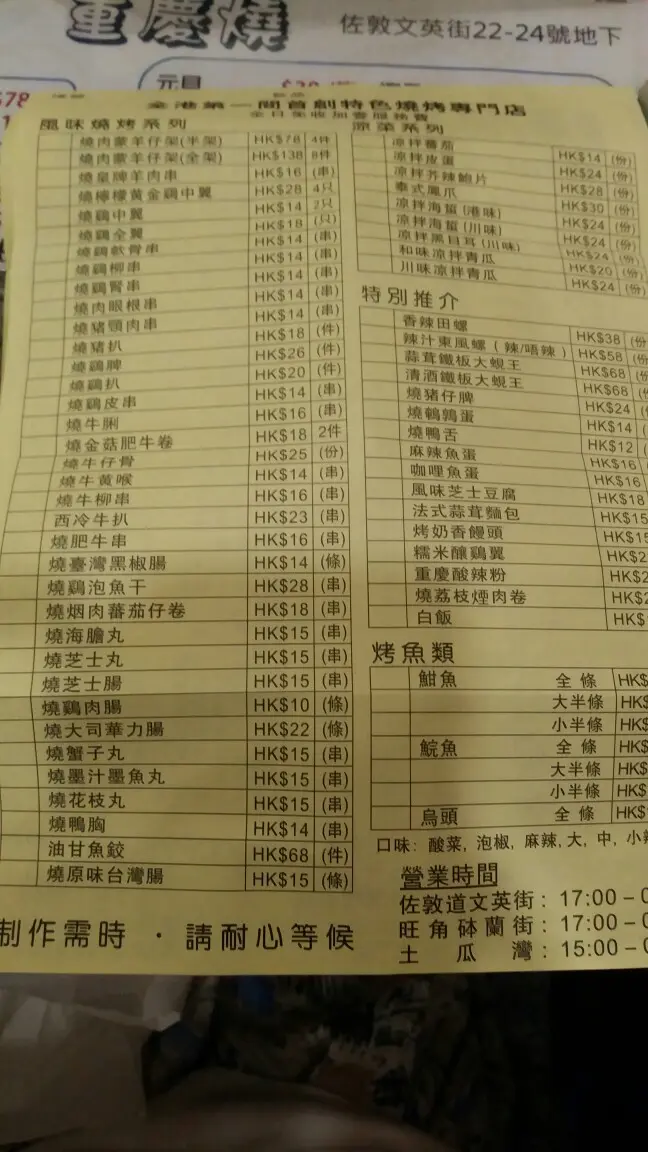 重慶燒
佐敦文英街22-24號地下
$78
全港第一間首創特色燒烤專門店
全日免收加壹服務費
風味燒烤系列
燒肉蒙羊仔架(半架) HK$78 4件
燒肉蒙羊仔架(全架) HK$138 8件
燒皇牌羊肉串 HK$16 (串)
燒檸檬黃金鷄中翼 HK$28 4只
燒鷄中翼 HK$14 2只
燒鷄全翼 HK$18 (只)
燒鷄軟骨串 HK$14 (串)
燒鷄柳串 HK$14 (串)
燒鷄腎串 HK$14 (串)
燒肉眼根串 HK$14 (串)
燒猪頸肉串 HK$14 (串)
燒猪扒 HK$18 (件)
燒鷄脾 HK$26 (件)
燒鷄扒 HK$20 (件)
燒鷄皮串 HK$14 (串)
燒牛脷 HK$16 (串)
燒金菇肥牛卷 HK$18 2件
燒牛仔骨 HK$25 (份)
燒牛黃喉 HK$14 (串)
燒牛柳串 HK$16 (串)
西冷牛扒 HK$23 (串)
燒肥牛串 HK$16 (串)
燒臺灣黑椒腸 HK$14 (條)
燒鷄泡魚干 HK$28 (串)
燒烟肉蕃茄仔卷 HK$18 (串)
燒海膽丸 HK$15 (串)
燒芝士丸 HK$15 (串)
燒芝士腸 HK$15 (串)
燒鷄肉腸 HK$10 (條)
燒大司華力腸 HK$22 (條)
燒蟹子丸 HK$15 (串)
燒墨汁墨魚丸 HK$15 (串)
燒花枝丸 HK$15 (串)
燒鴨胸 HK$14 (串)
油甘魚鮫 HK$68 (件)
燒原味台灣腸 HK$15 (條)
制作需時 · 請耐心等候
涼菜系列
涼拌番茄 HK$14 (份)
涼拌皮蛋 HK$24 (份)
涼拌芥辣鮑片 HK$28 (份)
泰式鳳爪 HK$30 (份)
涼拌海蜇(港味) HK$24 (份)
涼拌海蜇(川味) HK$24 (份)
涼拌黑目耳(川味) HK$24 (份)
和味涼拌青瓜 HK$20 (份)
川味涼拌青瓜 HK$24 (份)
特別推介
香辣田螺 HK$38 (份
辣汁東風螺(辣/唔辣) HK$58 (份
蒜茸鐵板大蜆王 HK$68 (份
清酒鐵板大蜆王 HK$68 (份
燒猪仔脾 HK$24 (
燒鵪鶉蛋 HK$14 (
燒鴨舌 HK$12 (
麻辣魚蛋 HK$16 (
咖哩魚蛋 HK$16
風味芝士豆腐 HK$18
法式蒜茸麵包 HK$15
烤奶香饅頭 HK$15
糯米釀鷄翼 HK$2
重慶酸辣粉 HK$2
燒荔枝煙肉卷 HK$2
白飯 HK$
烤魚類
鮒魚 全條 HK$
大半條 HK$
小半條 HK$
鯇魚 全條 HK$
大半條 HK$
小半條 HK$
烏頭 全條 HK$
口味: 酸菜, 泡椒, 麻辣, 大, 中, 小辣
營業時間
佐敦道文英街: 17:00 – 0
旺角砵蘭街: 17:00 – 0
土瓜灣: 15:00 – 0